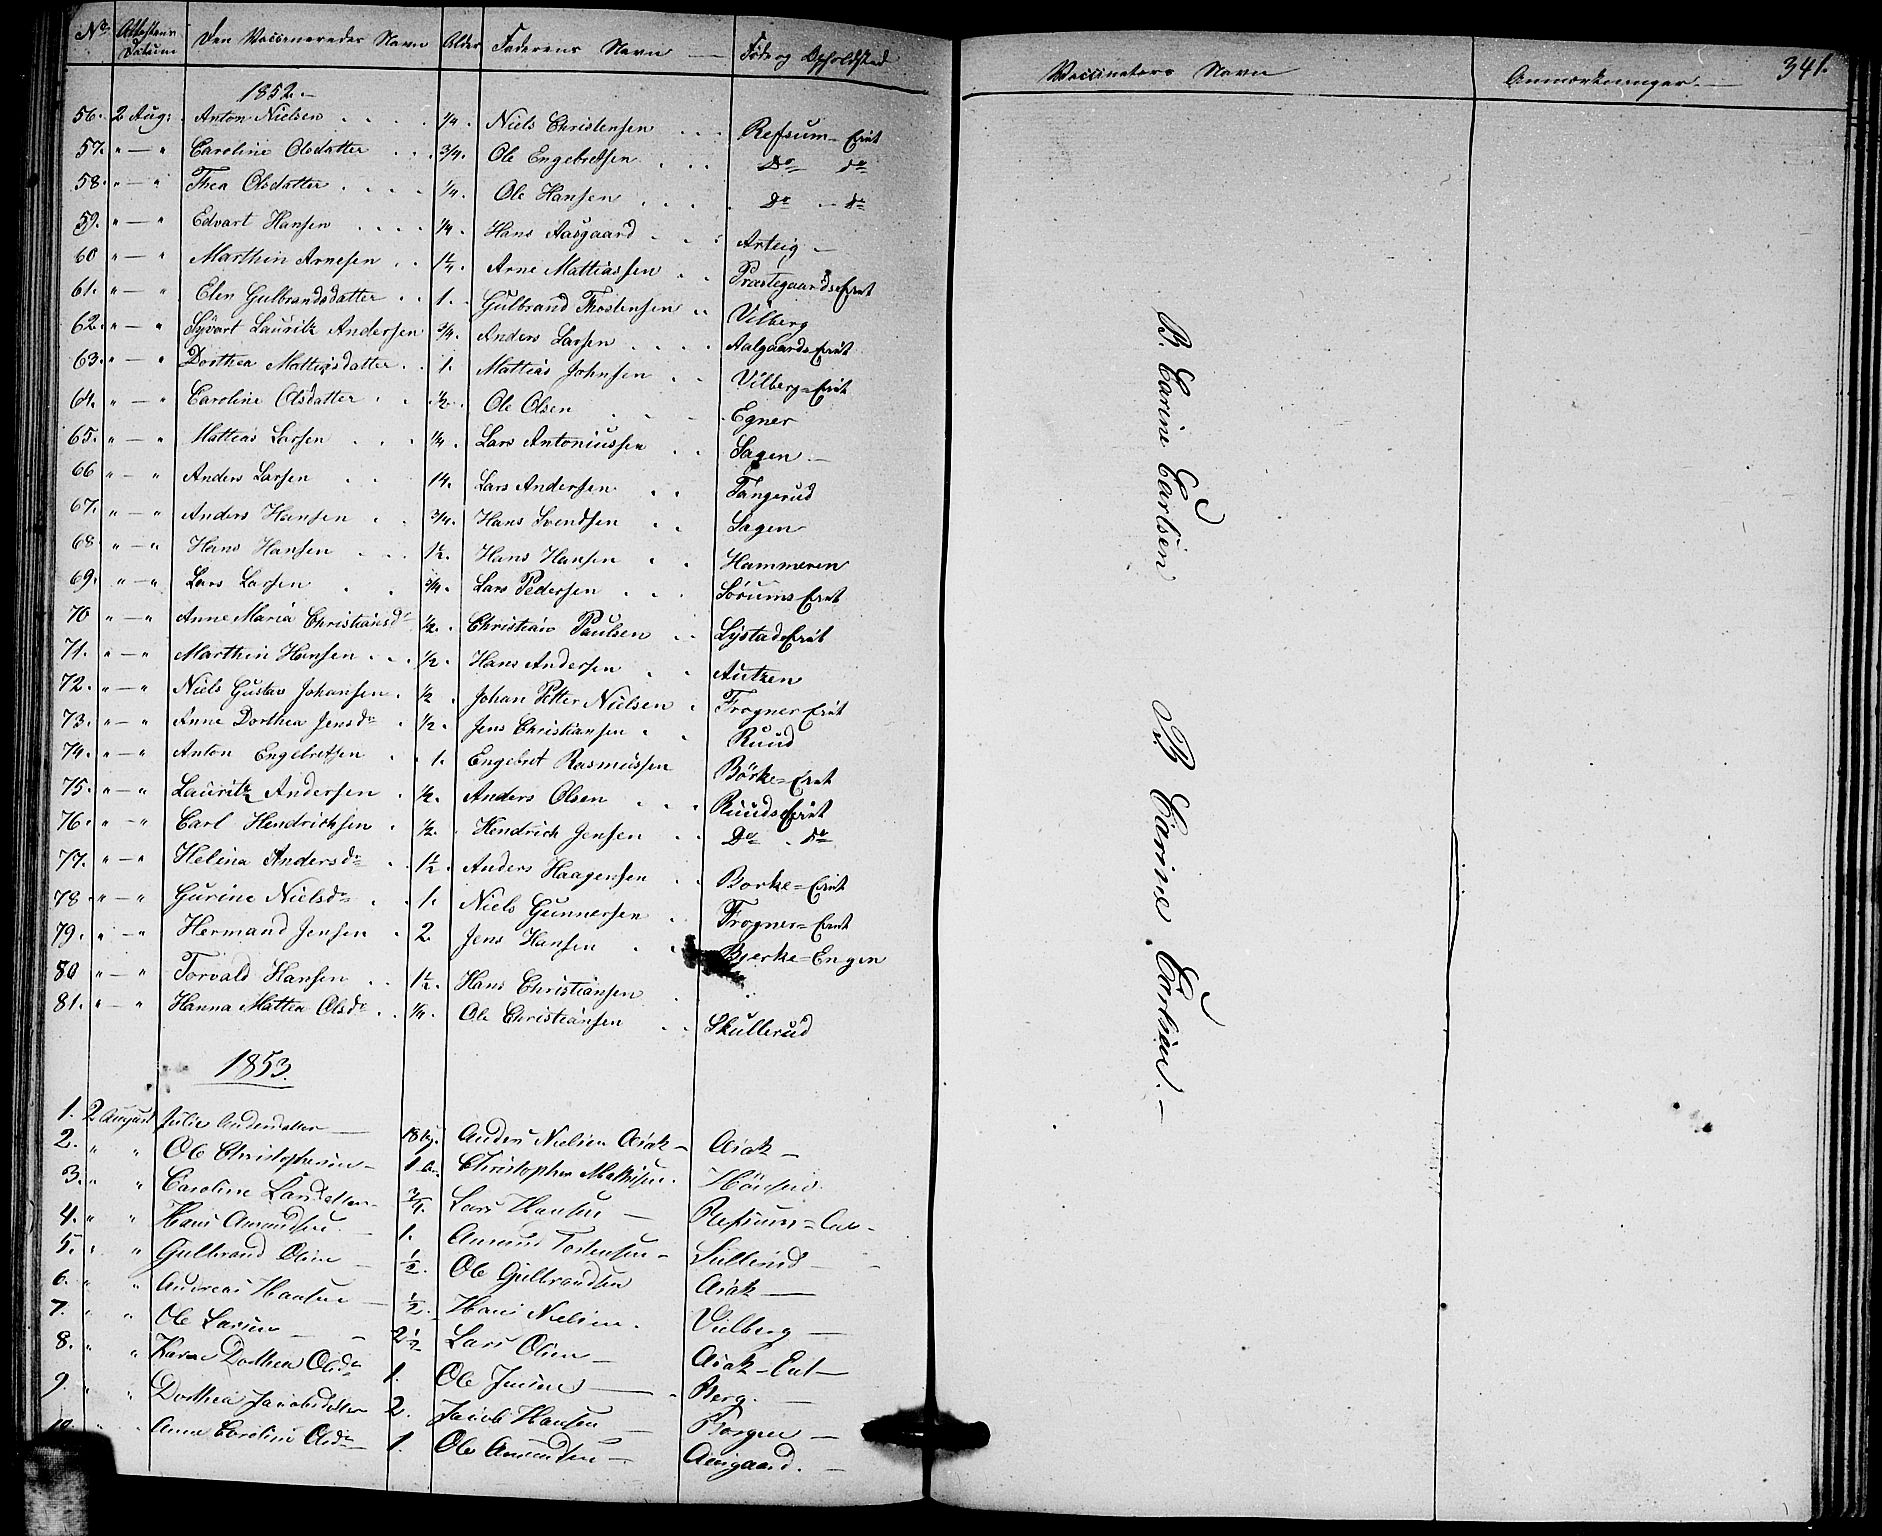 No. Attestens Datum Den Vaccineredes Navn Alder Faderens Navn Føde og Opholdsted Vaccinators Navn Anmærkninger. 341.
1852.
56. 2 Aug: Anton Nielsen 1/4. Niels Christensen Refsum-Eiet
57. " — " Caroline Olsdatter 3/4. Ole Engebretsen Do do
58. " — " Thea Olsdatter 1/4. Ole Hansen Do do
59. " — " Edvart Hansen 1/4. Hans Aasgaard Arteig
60 " — " Marthin Arnesen 1 1/4. Arne Mattiassen PræstegaardsEiet
61. " — " Elen Gulbrandsdatter 1. Gulbrand Thostensen Vilberg
62. " — " Syvart Lauritz Andersen 3/4. Anders Larsen AalgaardsEiet
63. " — " Dorthea Mattiasdatter 1. Mattias Johnsen Vilberg=Eiet
64. " — " Caroline Olsdatter 1/2. Ole Olsen Egner
65. " — " Mattias Larsen 1/4. Lars Antoniussen Sagen
66 " — " Anders Larsen 14. Lars Andersen Tangerud
67. " — " Anders Hansen 3/4. Hans Svendsen Sagen
68. " — " Hans Hansen 1 1/2. Hans Hansen Hammeren
69. " — " Lars Larsen 3/4. Lars Pedersen Sørums Eiet
70 " — " Anne Maria Christiansdr 1/2. Christian Paulsen LystadsEiet
71. " — " Marthin Hansen 1/2. Hans Andersen Autzen
72. " — " Niels Gustav Johansen 1/2 Johan Petter Nielsen Frogner Eiet
73. " — " Anne Dorthea Jensdr 1/2. Jens Christiansen Ruud
74. " — " Anton Engebretsen 1. Engebret Rasmussen Börke=Eiet
75. " — " Lauritz Andersen 1/2. Anders Olsen RuudsEiet
76. " — " Carl Hendrichsen 1/2. Hendrich Jensen Do do
77. " — " Helina Andersdr 1 1/2. Anders Haagensen Borke=Eiet
78 " — " Gurine Nielsdr 1. Niels Gunnersen Frogner=Eiet
79. " — " Hermand Jensen 2. Jens Hansen Bjerke=Engen
80 " — " Torvald Hansen 1 1/2. Hans Christiansen
81. " — " Hanna Mattea Olsdr 1/4. Ole Christiansen Skullerud
1853.
1. 2 August Julie Andersdatter Anders Nielsen Aiak Aiak
2. " " Ole Christophersen 1 Christopher Mathisen
3. " " Caroline Larsdatter 3/4. Lars Hansen Refsum=Eie
4. " " Hans Amundsen 1. Amund Tostensen
5. " " Gulbrand Olsen 1/2. Ole Gulbrandsen Aiak
6. " " Andreas Hansen 1/2. Hans Nielsen Vielberg
7. " " Ole Larsen 2 1/2 Lars Olsen Aiak-Eie
8. " " Karen Dorthea Olsdr 1. Ole Jensen Berg
9. " " Dorthea Jacobsdatter 2. Jacob Hansen
10. " " Anne Caroline Olsdr 1. Ole Amundsen Asgaard.
B. Carine Carlsen
B. Carine Carlsen.